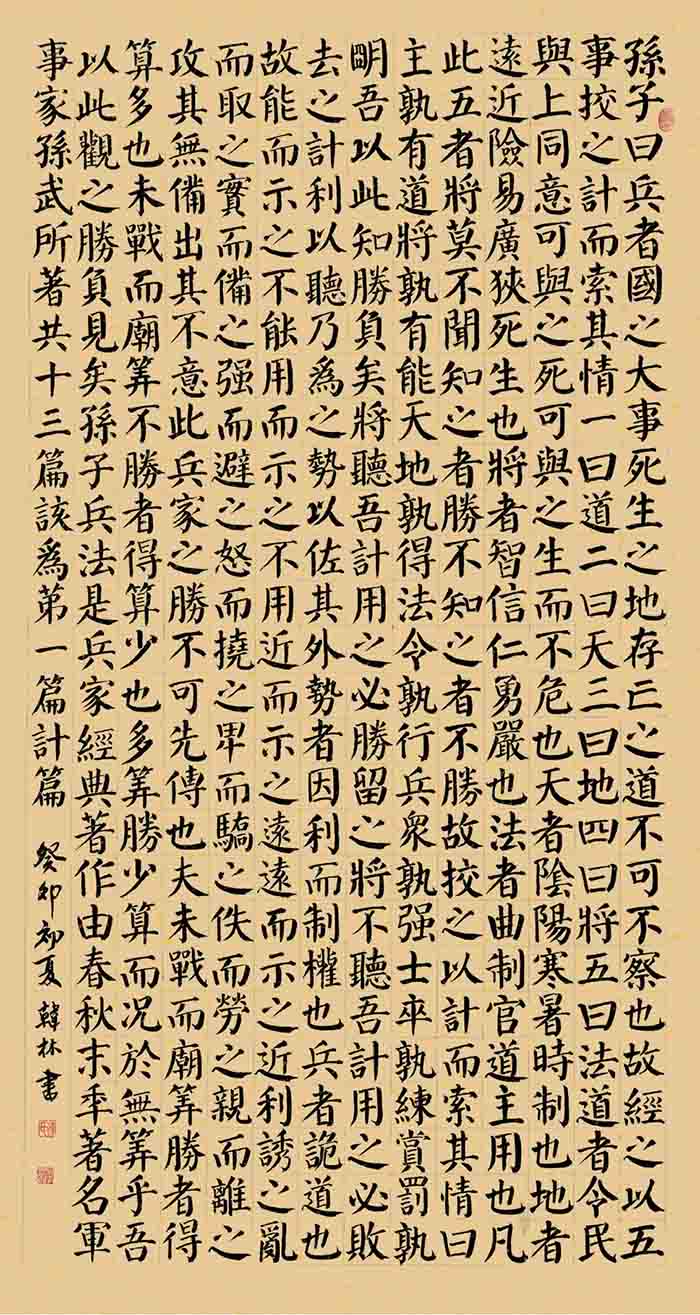 孫子曰兵者國之大事死生之地存亡之道不可不察也故經之以五
事挍之計而索其情一曰道二曰天三曰地四曰將五曰法道者令民
與上同意可與之死可與之生而不危也天者陰陽寒暑時制也地者
遠近險易廣狹死生也將者智信仁勇嚴也法者曲制官道主用也凡
此五者將莫不聞知之者勝不知之者不勝故挍之以計而索其情曰
主孰有道將孰有能天地孰得法令孰行兵衆孰强士卒孰練賞罰孰
眀吾以此知勝負矣將聽吾計用之必勝留之將不聽吾計用之必敗
去之計利以聽乃爲之勢以佐其外勢者因利而制權也兵者詭道也
故能而示之不能用而示之不用近而示之遠遠而示之近利誘之亂
而取之實而備之强而避之怒而撓之卑而驕之佚而勞之親而離之
攻其無備出其不意此兵家之勝不可先傳也夫未戰而廟筭勝者得
算多也未戰而廟筭不勝者得算少也多筭勝少算而况於無筭乎吾
以此觀之勝負見矣孫子兵法是兵家經典著作由春秋末季著名軍
事家孫武所著共十三篇該爲第一篇計篇 癸卯初夏韓林書